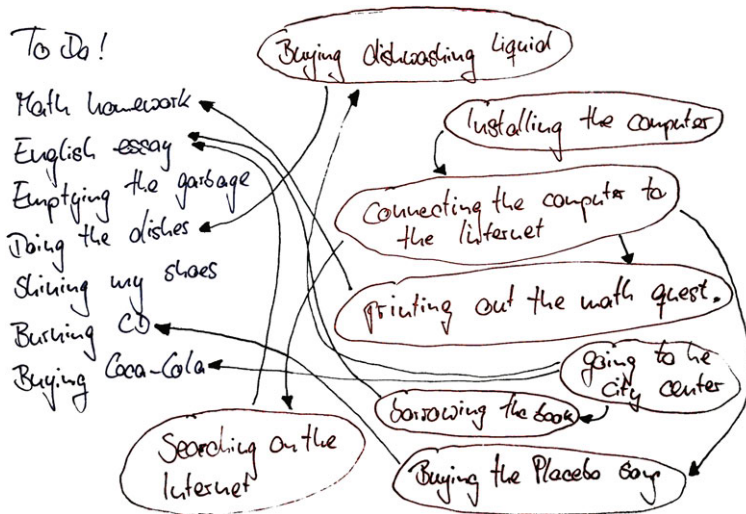 To Do!
Math homework
English essay
Emptying the garbage
Doing the dishes
Shining my shoes
Burning CD
Buying Coca-Cola
Buying dishwashing liquid
Installing the computer
Connecting the computer to
the Internet
printing out the math quest.
going to he
city center
borrowing the book
Searching on the
Internet
Buying the Placebo song